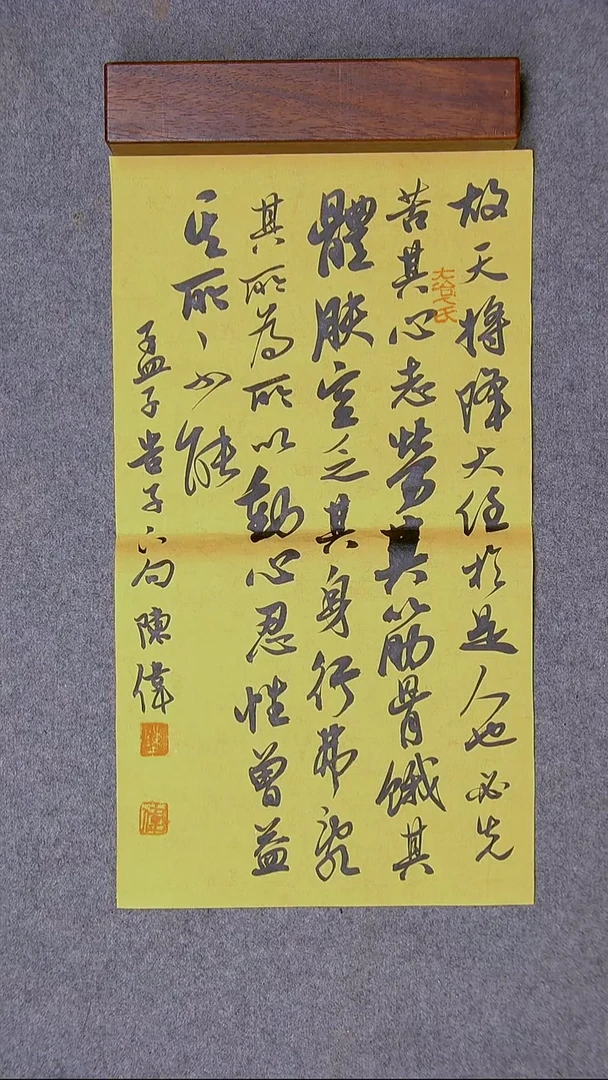 故天将降大任於是人也必先
苦其心志勞其筋骨餓其
體肤空乏其身行弗亂
其所為所以動心忍性曾益
其所不能
孟子告子下句 陳偉